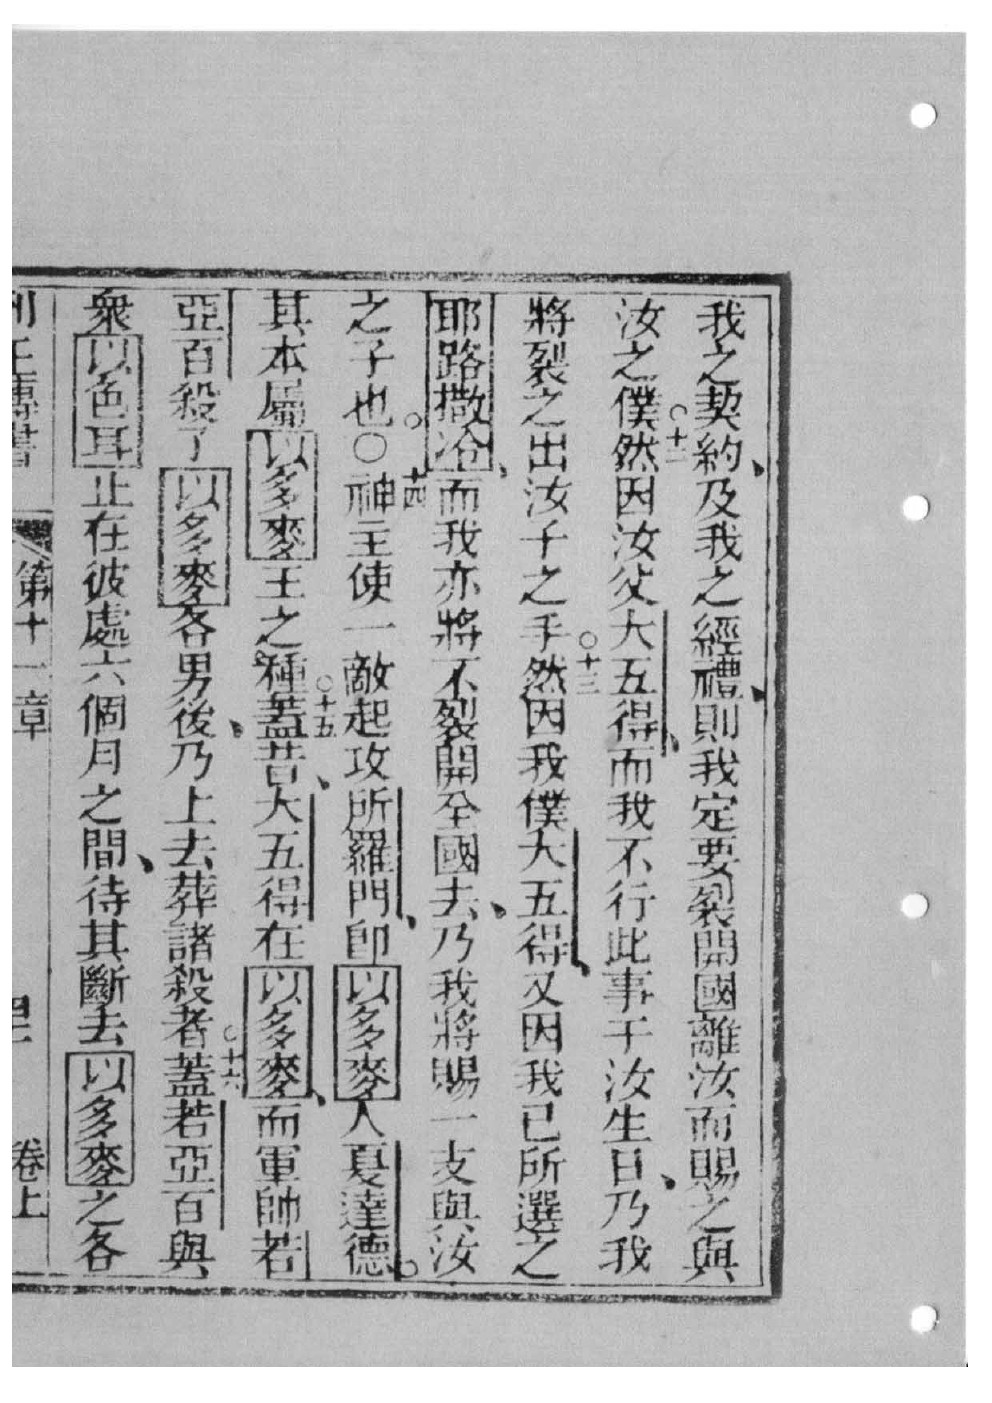 我之契約及我之經禮則我定要裂開國離汝而賜之與
汝之僕○十二然因汝父大五得而我不行此事于汝生日乃我
將裂之出汝子之手○十三然因我僕大五得又因我已所選之
耶路撒冷而我亦將不裂開全國去乃我將賜一支與汝
之子也○○十四神主使一敵起攻所羅門即以多麥人夏達德
其本屬以多麥王之種○十五蓋昔大五得在以多麥而軍帥若
亞百殺了以多麥各男後乃上去葬諸殺者○十六蓋若亞百與
衆以色耳止在彼處六個月之間待其斷去以多麥之各
列王傳書 第十一章 卷上